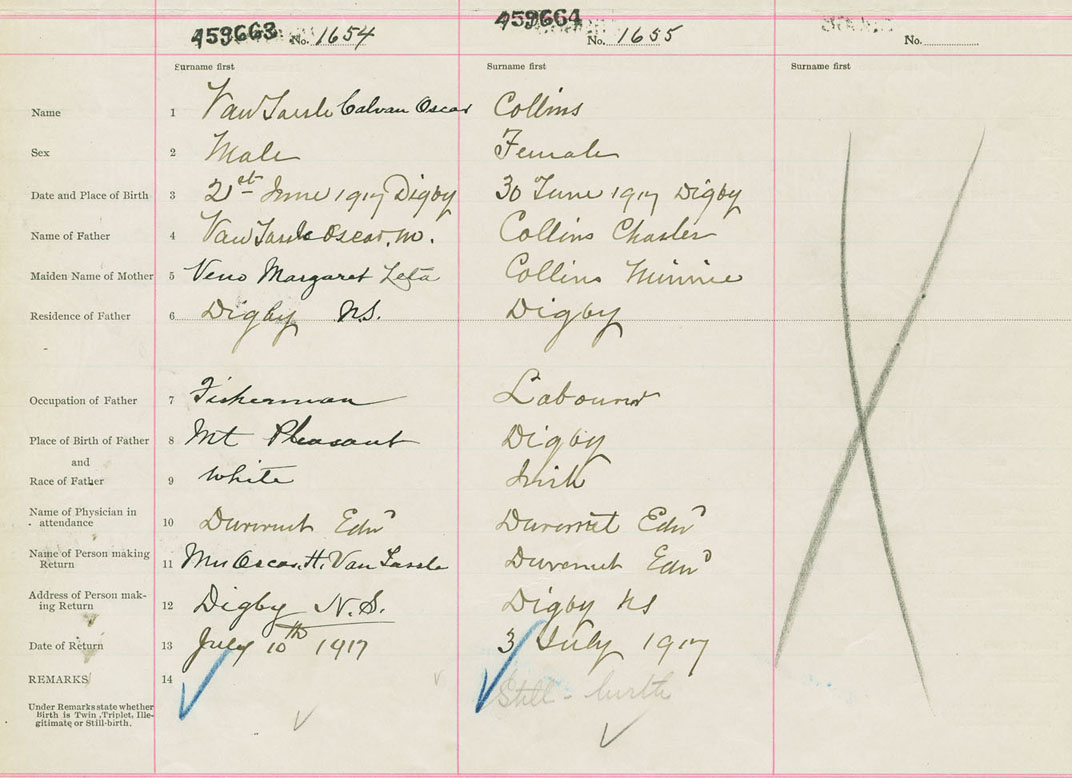 459663 No. 1654 459664 No. 1655 No.
Surname first Surname first Surname first
Name 1 Van Tassle Calvan Oscar Collins
Sex 2 Male Female
Date and Place of Birth 3 21st June 1917 Digby 30 June 1917 Digby
Name of Father 4 Van Tassle Oscar. Collins Charles
Maiden Name of Mother 5 Veno Margaret Leta Collins Minnie
Residence of Father 6 Digby N.S. Digby
Occupation of Father 7 Fisherman Labourer
Place of Birth of Father 8 Mt Pleasant Digby
and
Race of Father 9 White Irish
Name of Physician in
attendance 10 Edn Edn
Name of Person making
Return 11 Mrs Oscar. H. Van Tassle Edn
Address of Person mak-
ing Return 12 Digby N.S. Digby NS
Date of Return 13 July 10th 1917 3 July 1917
REMARKS 14 Still-birth
Under Remarks state whether
Birth is Twin, Triplet, Ille-
gitimate or Still-birth.